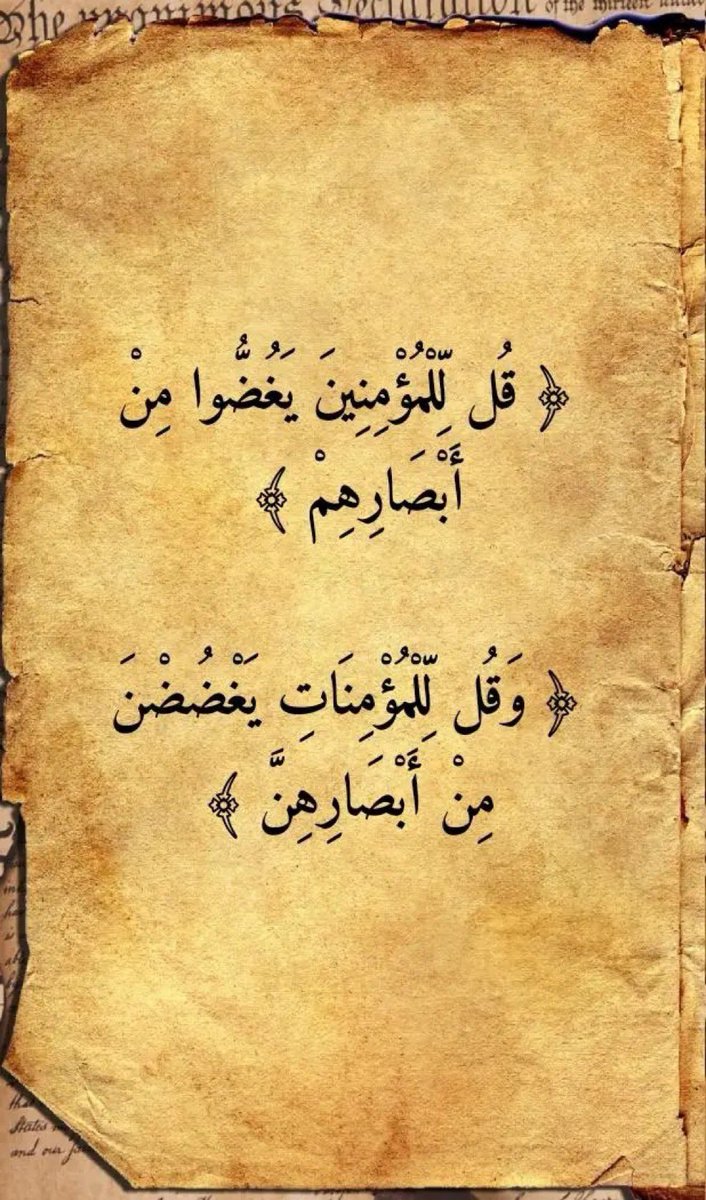 The unanimous Declaration of the thirteen united
﴿ قُل لِّلْمُؤْمِنِينَ يَغُضُّوا مِنْ
أَبْصَارِهِمْ ﴾
﴿ وَقُل لِّلْمُؤْمِنَاتِ يَغْضُضْنَ
مِنْ أَبْصَارِهِنَّ ﴾
States
and our